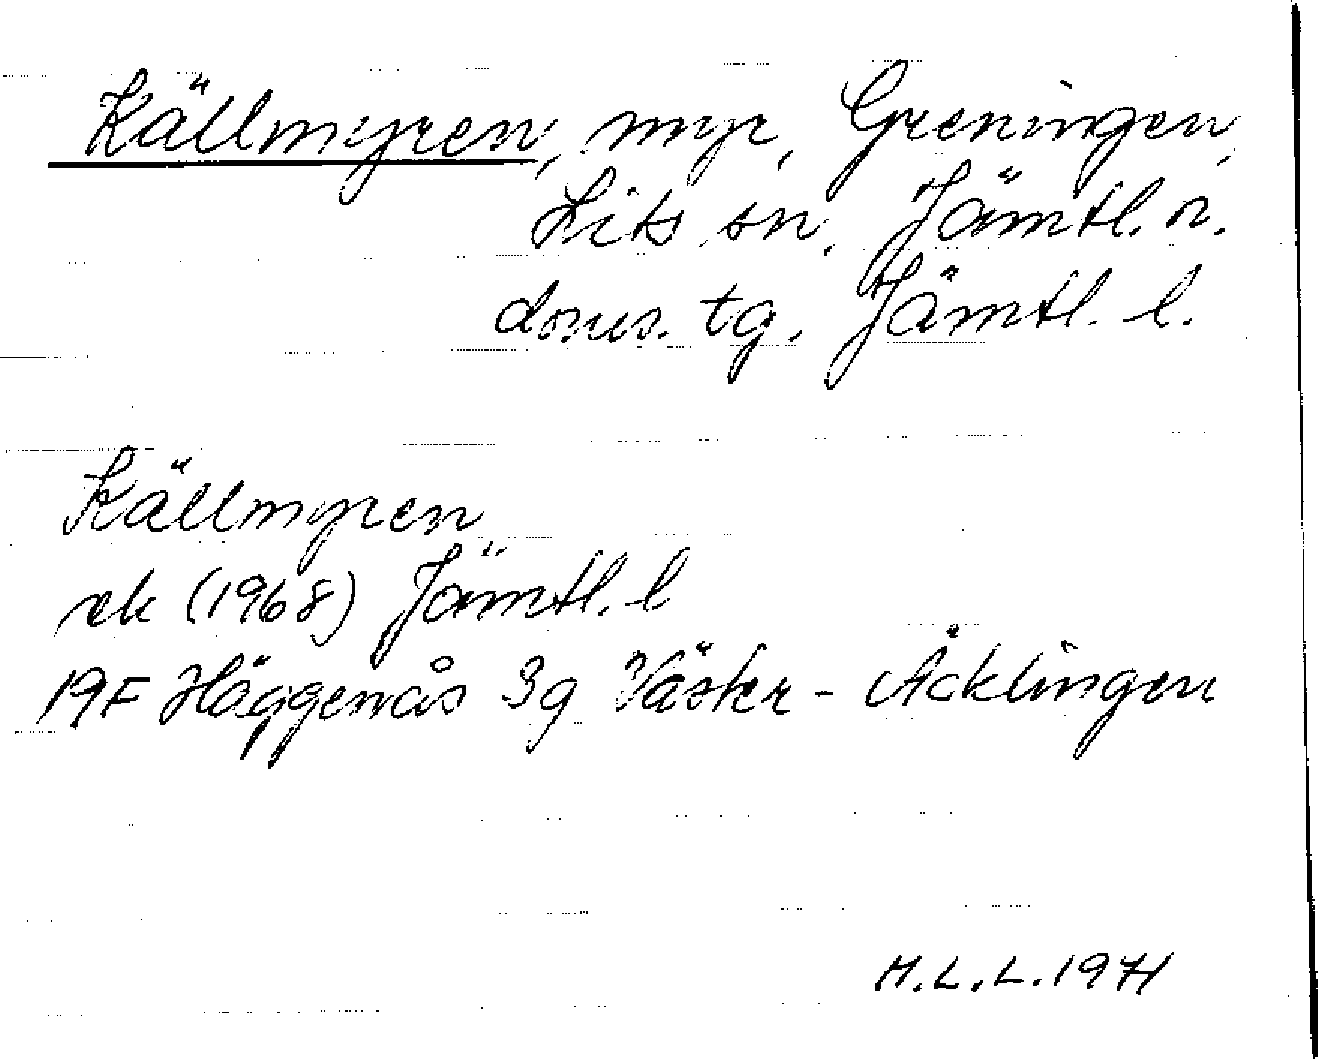 Källmyren, myr, Greningen,
Lits sn, Jämtl. n.
doms. tg, Jämtl. l.
Källmyren
ek (1968) Jämtl. l
19F Häggenås 3g Väster-Åcklingen
H.L.L. 1971